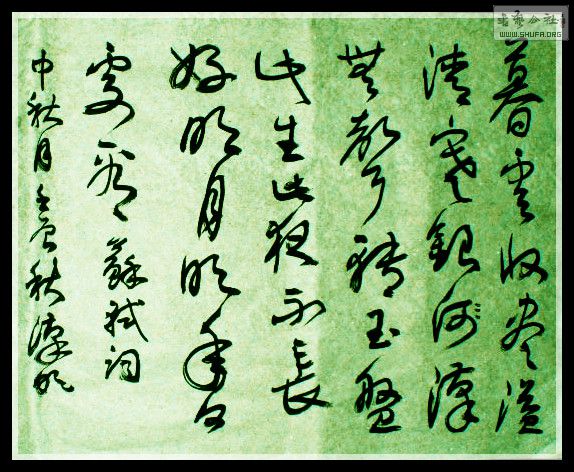 書藝公社
WWW.SHUFA.ORG
暮雲收盡溢
清寒銀河漢
無聲轉玉盤
此生此夜不長
好明月明年何
處看 蘇軾詞
中秋月 秋